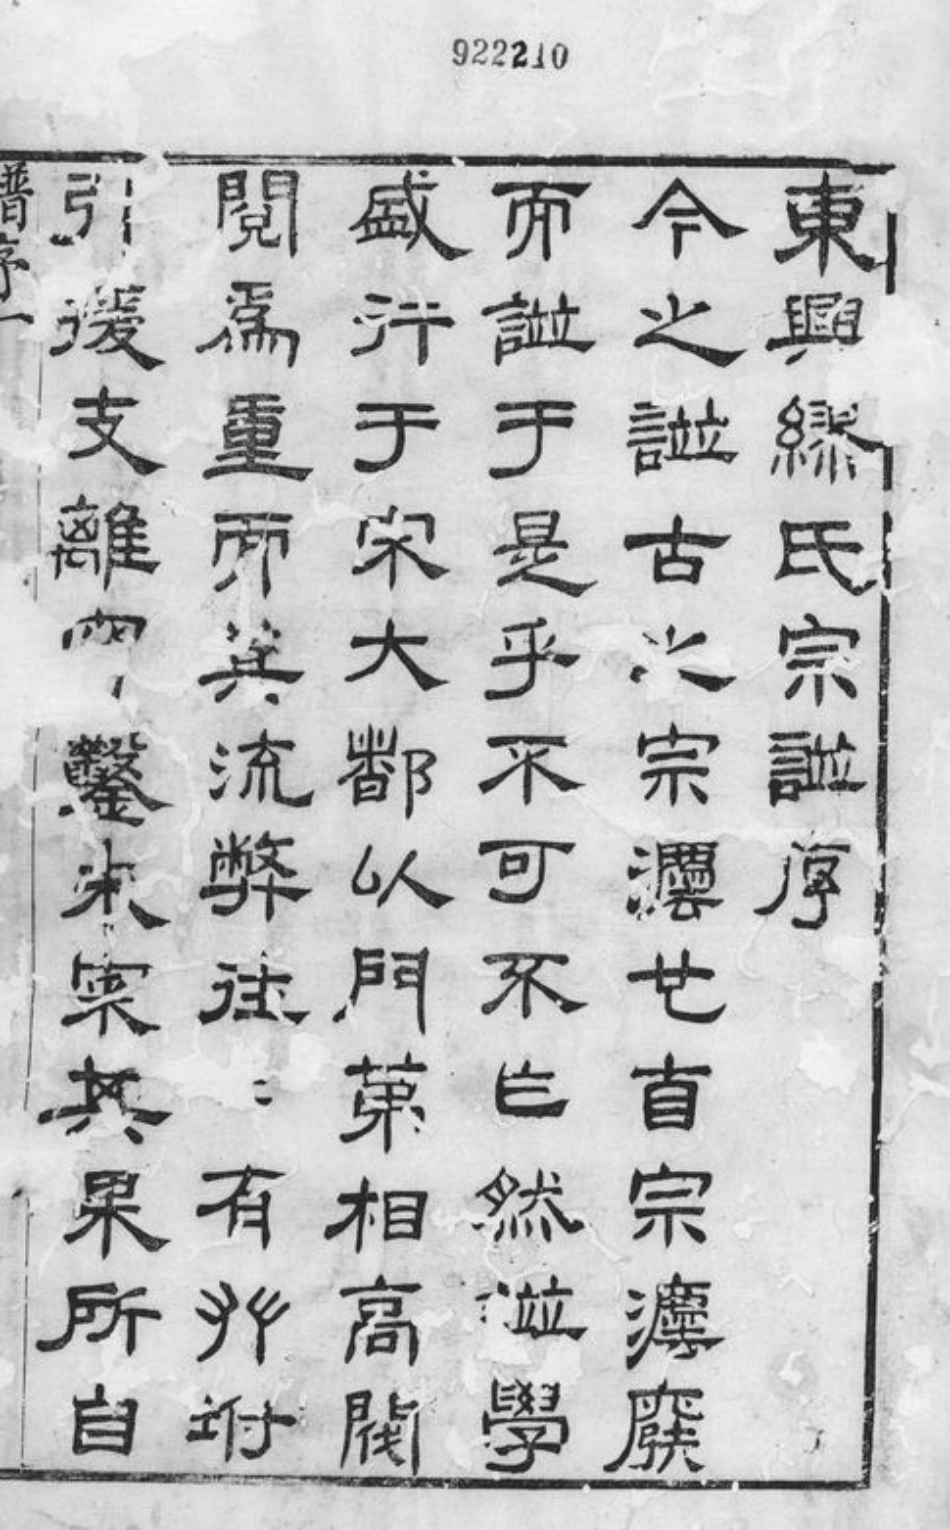 922210
東興繆氏宗譜序
今之譜古之宗灋也自宗灋廢
而譜于是乎不可不乍然譜學
盛行于宋大都以門第相高閥
閱爲重而其流弊往〻有𠬜坿
引援支離穿鑿未宷其果所自
譜序一